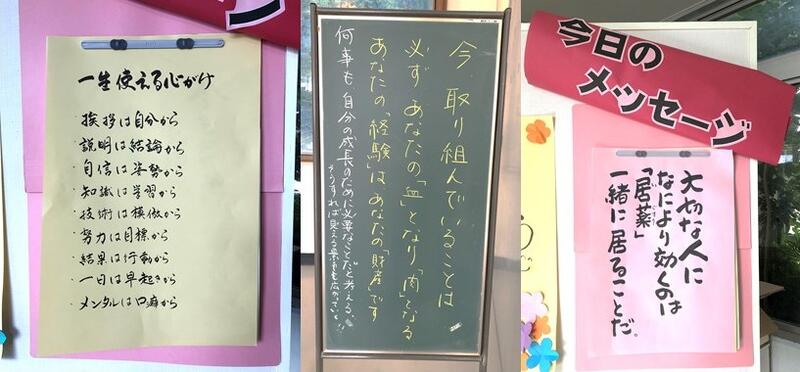 ジ
一生使える心がけ
・挨拶は自分から
・説明は結論から
・自信は姿勢から
・知識は学習から
・技術は模倣から
・努力は目標から
・結果は行動から
・一日は早起きから
・メンタルは口癖から
今、取り組んでいることは
必ず あなたの「血」となり「肉」となる
あなたの「経験」は あなたの「財産」です
何事も 自分の成長のために必要なことだと考える。
そうすれば見える景色も広がっていく!!
今日の
メッセージ
大切な人に
なにより効くのは
「居薬」
一緒に居ることだ。